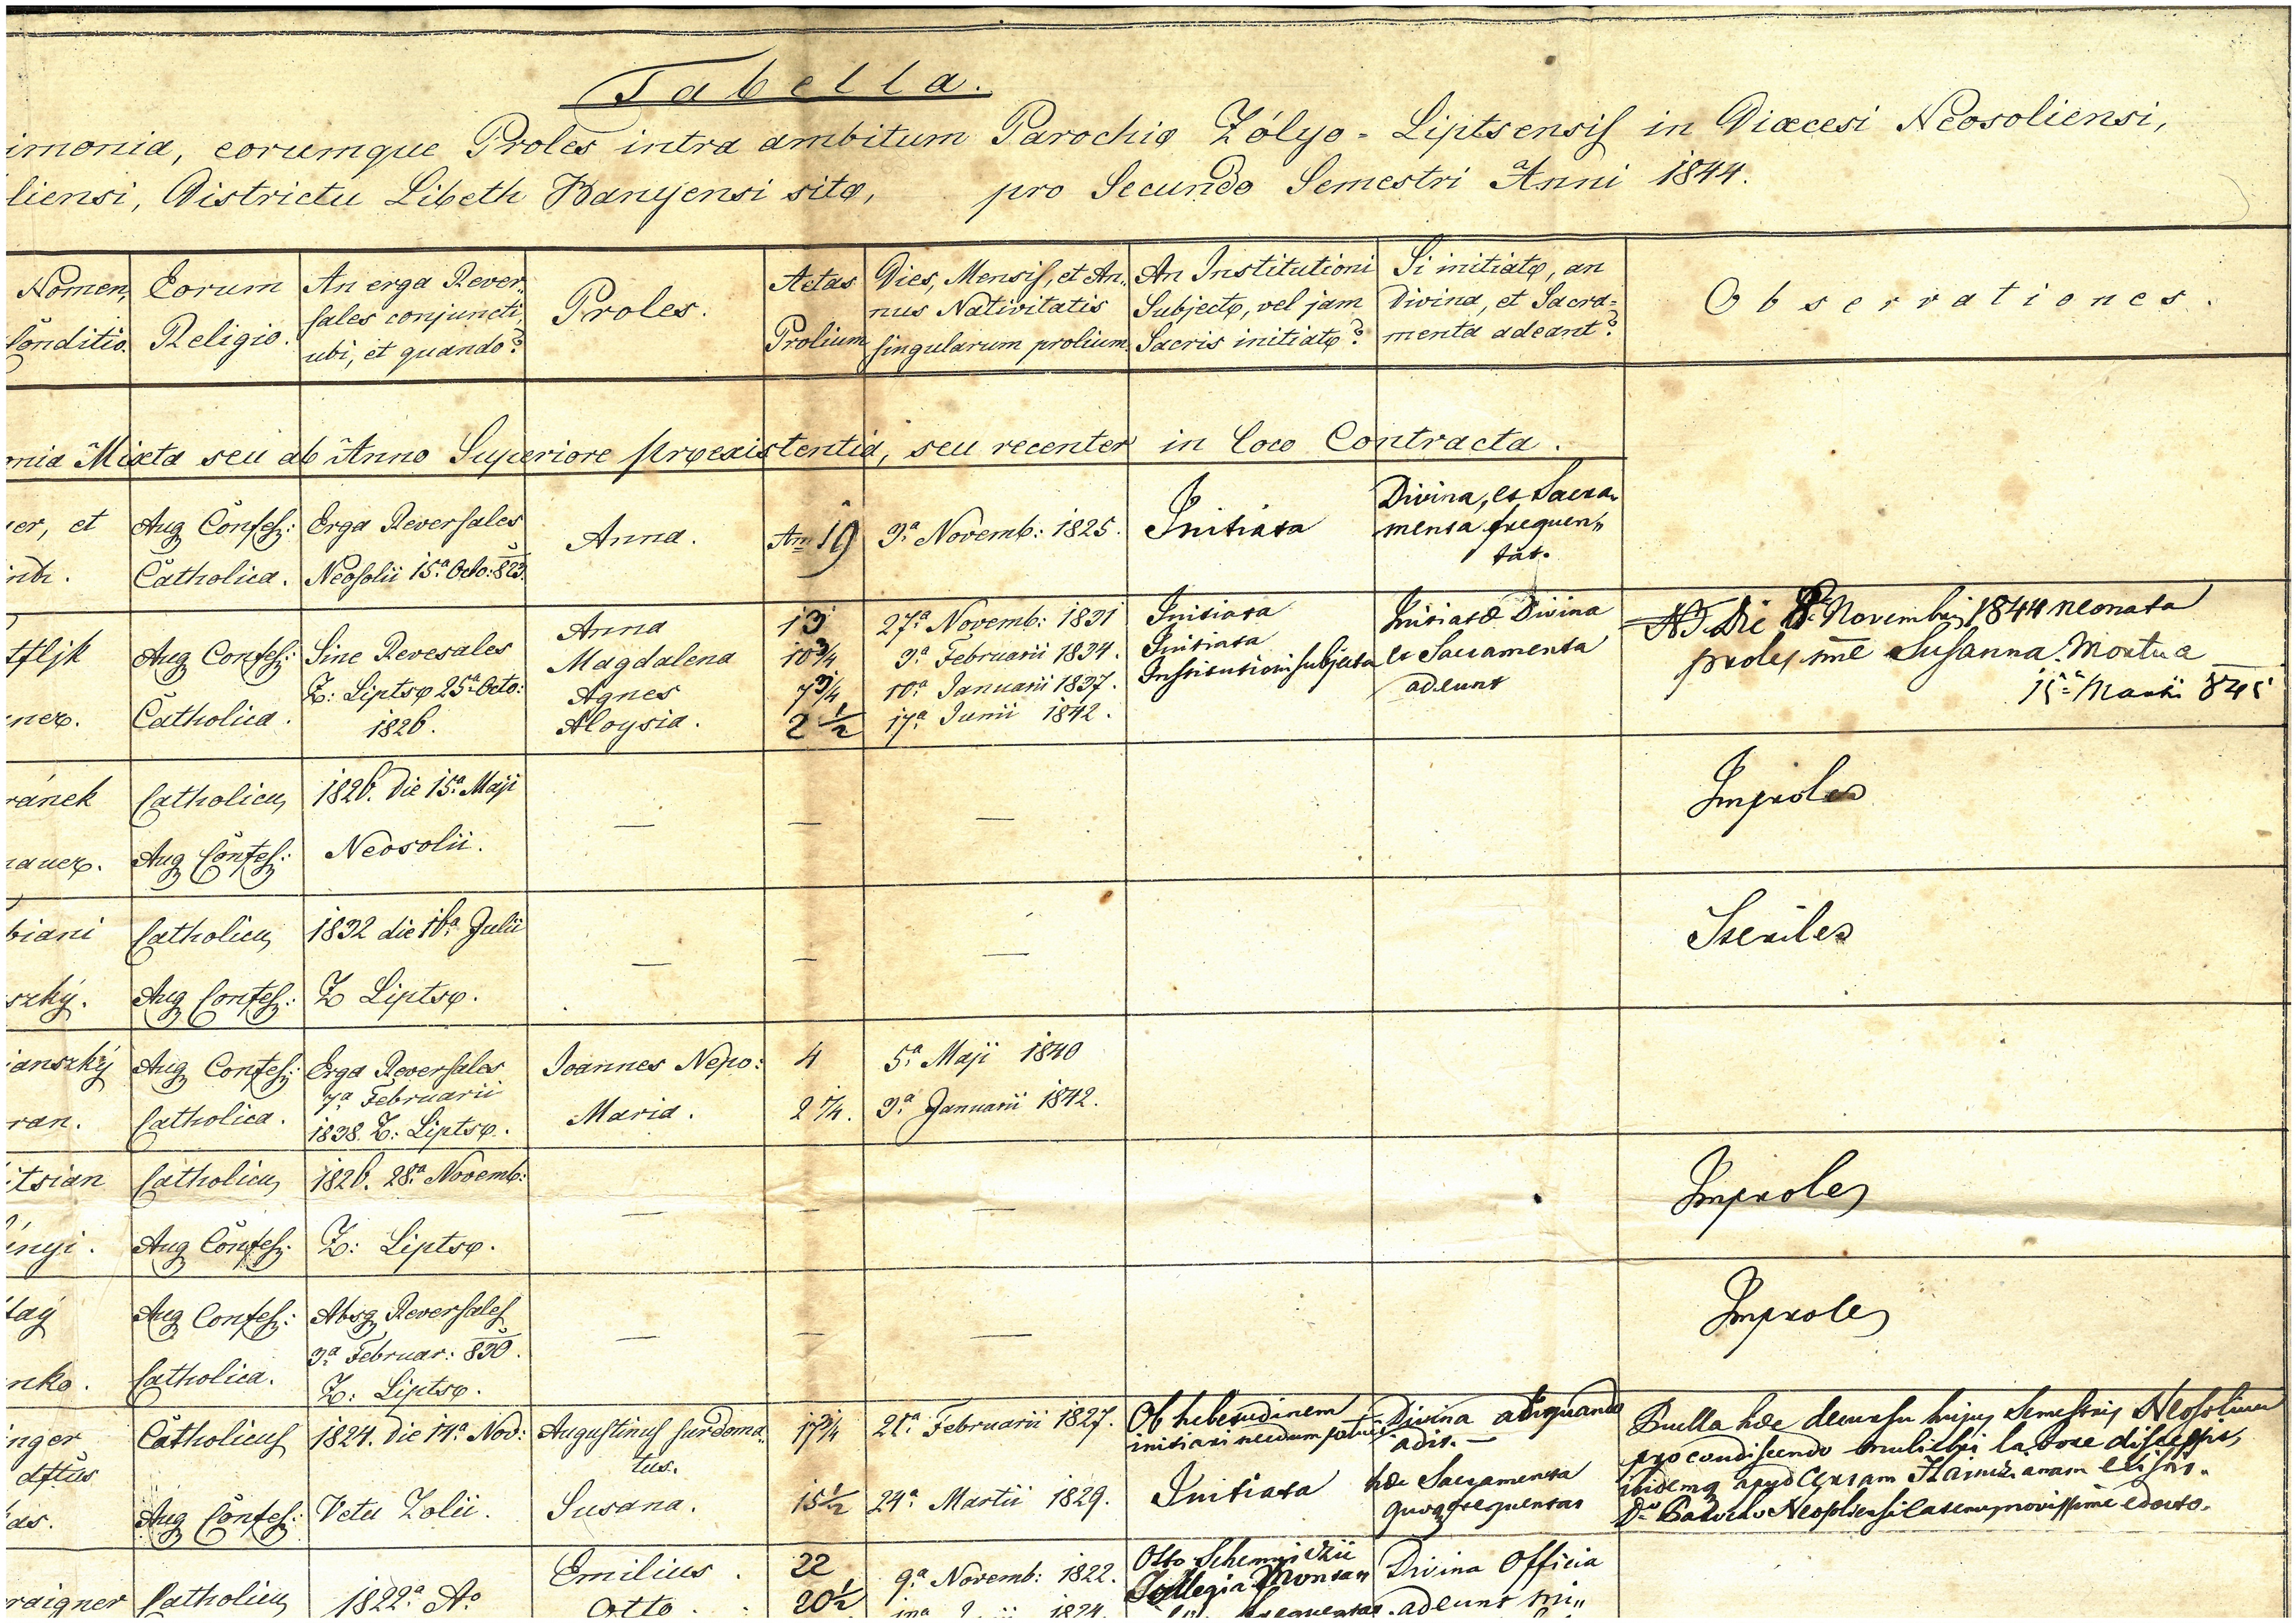 Tabella.
imonia, eorumque Proles intra ambitum Parochiæ Zólyo-Liptsensis in Diœcesi Neosoliensi,
liensi, Districtu Libeth Banyensi sitæ, pro Secundo Semestri Anni 1844.
Nomen,
Conditio.
Eorum
Religio.
An erga Rever
sales conjuncti,
ubi, et quando?
Proles.
Aetas
Prolium
Dies, Mensis, et An-
nus Nativitatis
singularum prolium.
An Institutioni
Subjectæ, vel jam
Sacris initiatæ?
Si initiatæ, an
Divina, et Sacra-
menta adeant?
Observationes.
onia Mixta seu ab Anno Superiore præexistentia, seu recenter in loco Contracta.
er, et
Aug Confes:
Catholica.
Erga Reversales
Neosolii 15a Octo: 823.
Anna.
19
3a Novemb: 1825.
Initiata
Divina, et Sacra-
menta frequen-
tat.
tfljk
ner.
Aug Confes:
Catholica.
Sine Revesales
Z: Liptsæ 25a Octo:
1826.
Anna
Magdalena
Agnes
Aloysia.
13
10 3/4
7 3/4
2 1/2
27a Novemb: 1831
3a Februarii 1834.
10a Januarii 1837.
17a Junii 1842.
Initiata
Initiata
Institutioni subjecta
Initiatæ Divina
et Sacramenta
adeunt
Die 8a Novembris 1844 neonata
proles Susanna. Mortua
15a Martii 845
ránek
nauer.
Catholicus
Aug Confes:
1826. Die 15a Maji
Neosolii.
— — —
Improles
biani
szký.
Catholicus
Aug Confes:
1832 die 16a Julii
Z Liptsæ.
— — —
Steriles
ianszký
ran.
Aug Confes:
Catholica.
Erga Reversales
7a Februarii
1838. Z: Liptsæ.
Joannes Nepo:
Maria.
4
2 1/4.
5a Maji 1840
3a Januarii 1842.
itsian
ényi.
Catholicus
Aug Confes:
1826. 28a Novemb:
Z: Liptsæ.
— — —
Improles
tay
nko.
Aug Confes:
Catholica.
Absq Reversales
3a Februar: 830.
Z: Liptsæ.
— — —
Improles
inger
as.
Catholicus
Aug Confes:
1824. Die 14a Nov:
Vetu Zolii.
Augustinus surdomu-
tus.
Susana.
17 3/4
15 1/2
21a Februarii 1827.
24a Martii 1829.
Ob hebetudinem
initiari necdum potuit
Initiata
Divina aliquando
adit. —
hæc Sacramenta
quoq frequentat
Puella hæc decursu hujus Semestris Neosolium
pro condiscendo muliebri labore discessit,
ibidemq apud
Neosoliensi
raigner
Catholicus
1822a Ao
Emilius.
Otto.
22
20 1/2
9a Novemb: 1822.
1824.
Otto Schemniczii
Collegia Montan
Divina Officia
adeunt